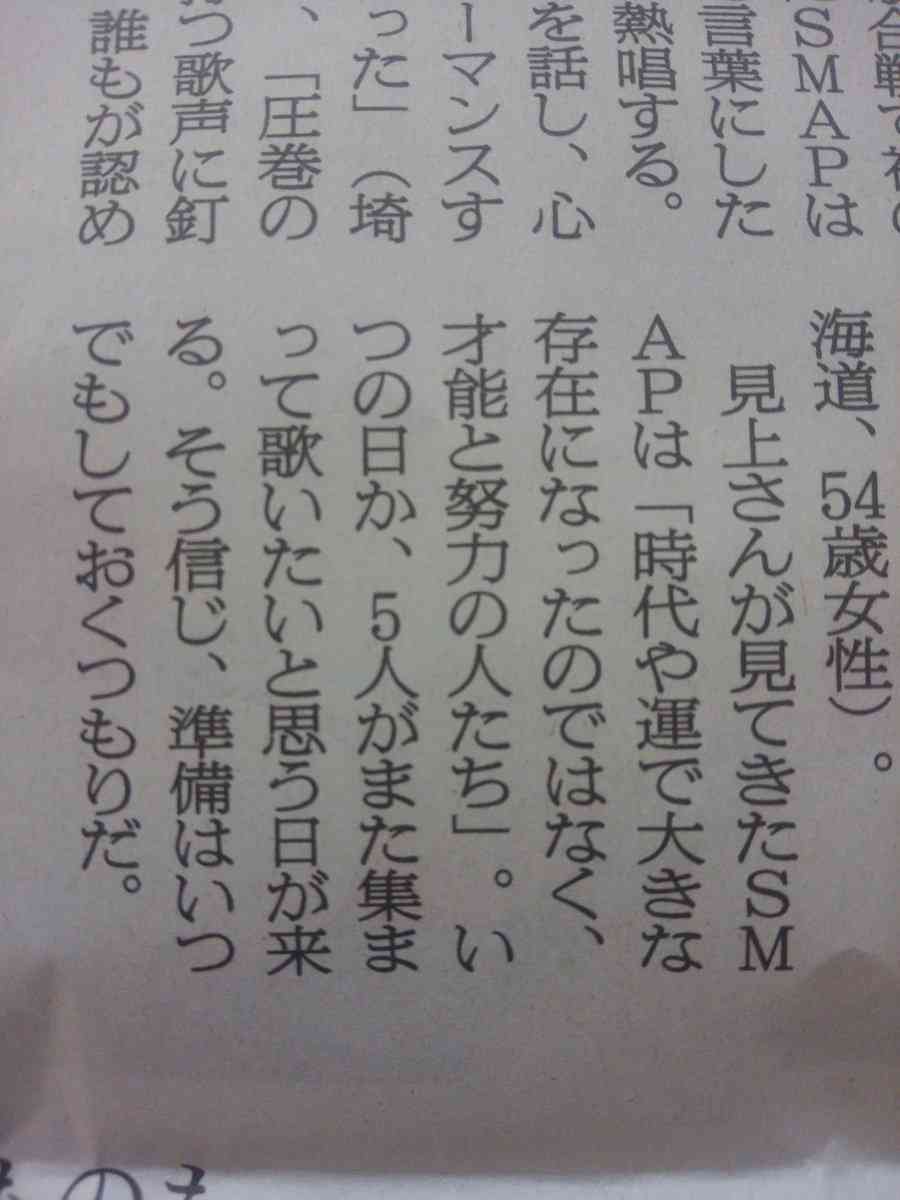 SMAPは
言葉にした
熱唱する。
を話し、心
ーマンスす
った」（埼
、「圧巻の
つ歌声に釘
誰もが認め
海道、54歳女性）。
見上さんが見てきたSM
APは「時代や運で大きな
存在になったのではなく、
才能と努力の人たち」。い
つの日か、5人がまた集ま
って歌いたいと思う日が来
る。そう信じ、準備はいつ
でもしておくつもりだ。